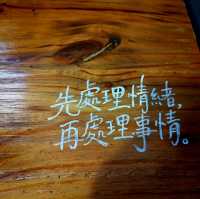 先處理情緒，
再處理事情。